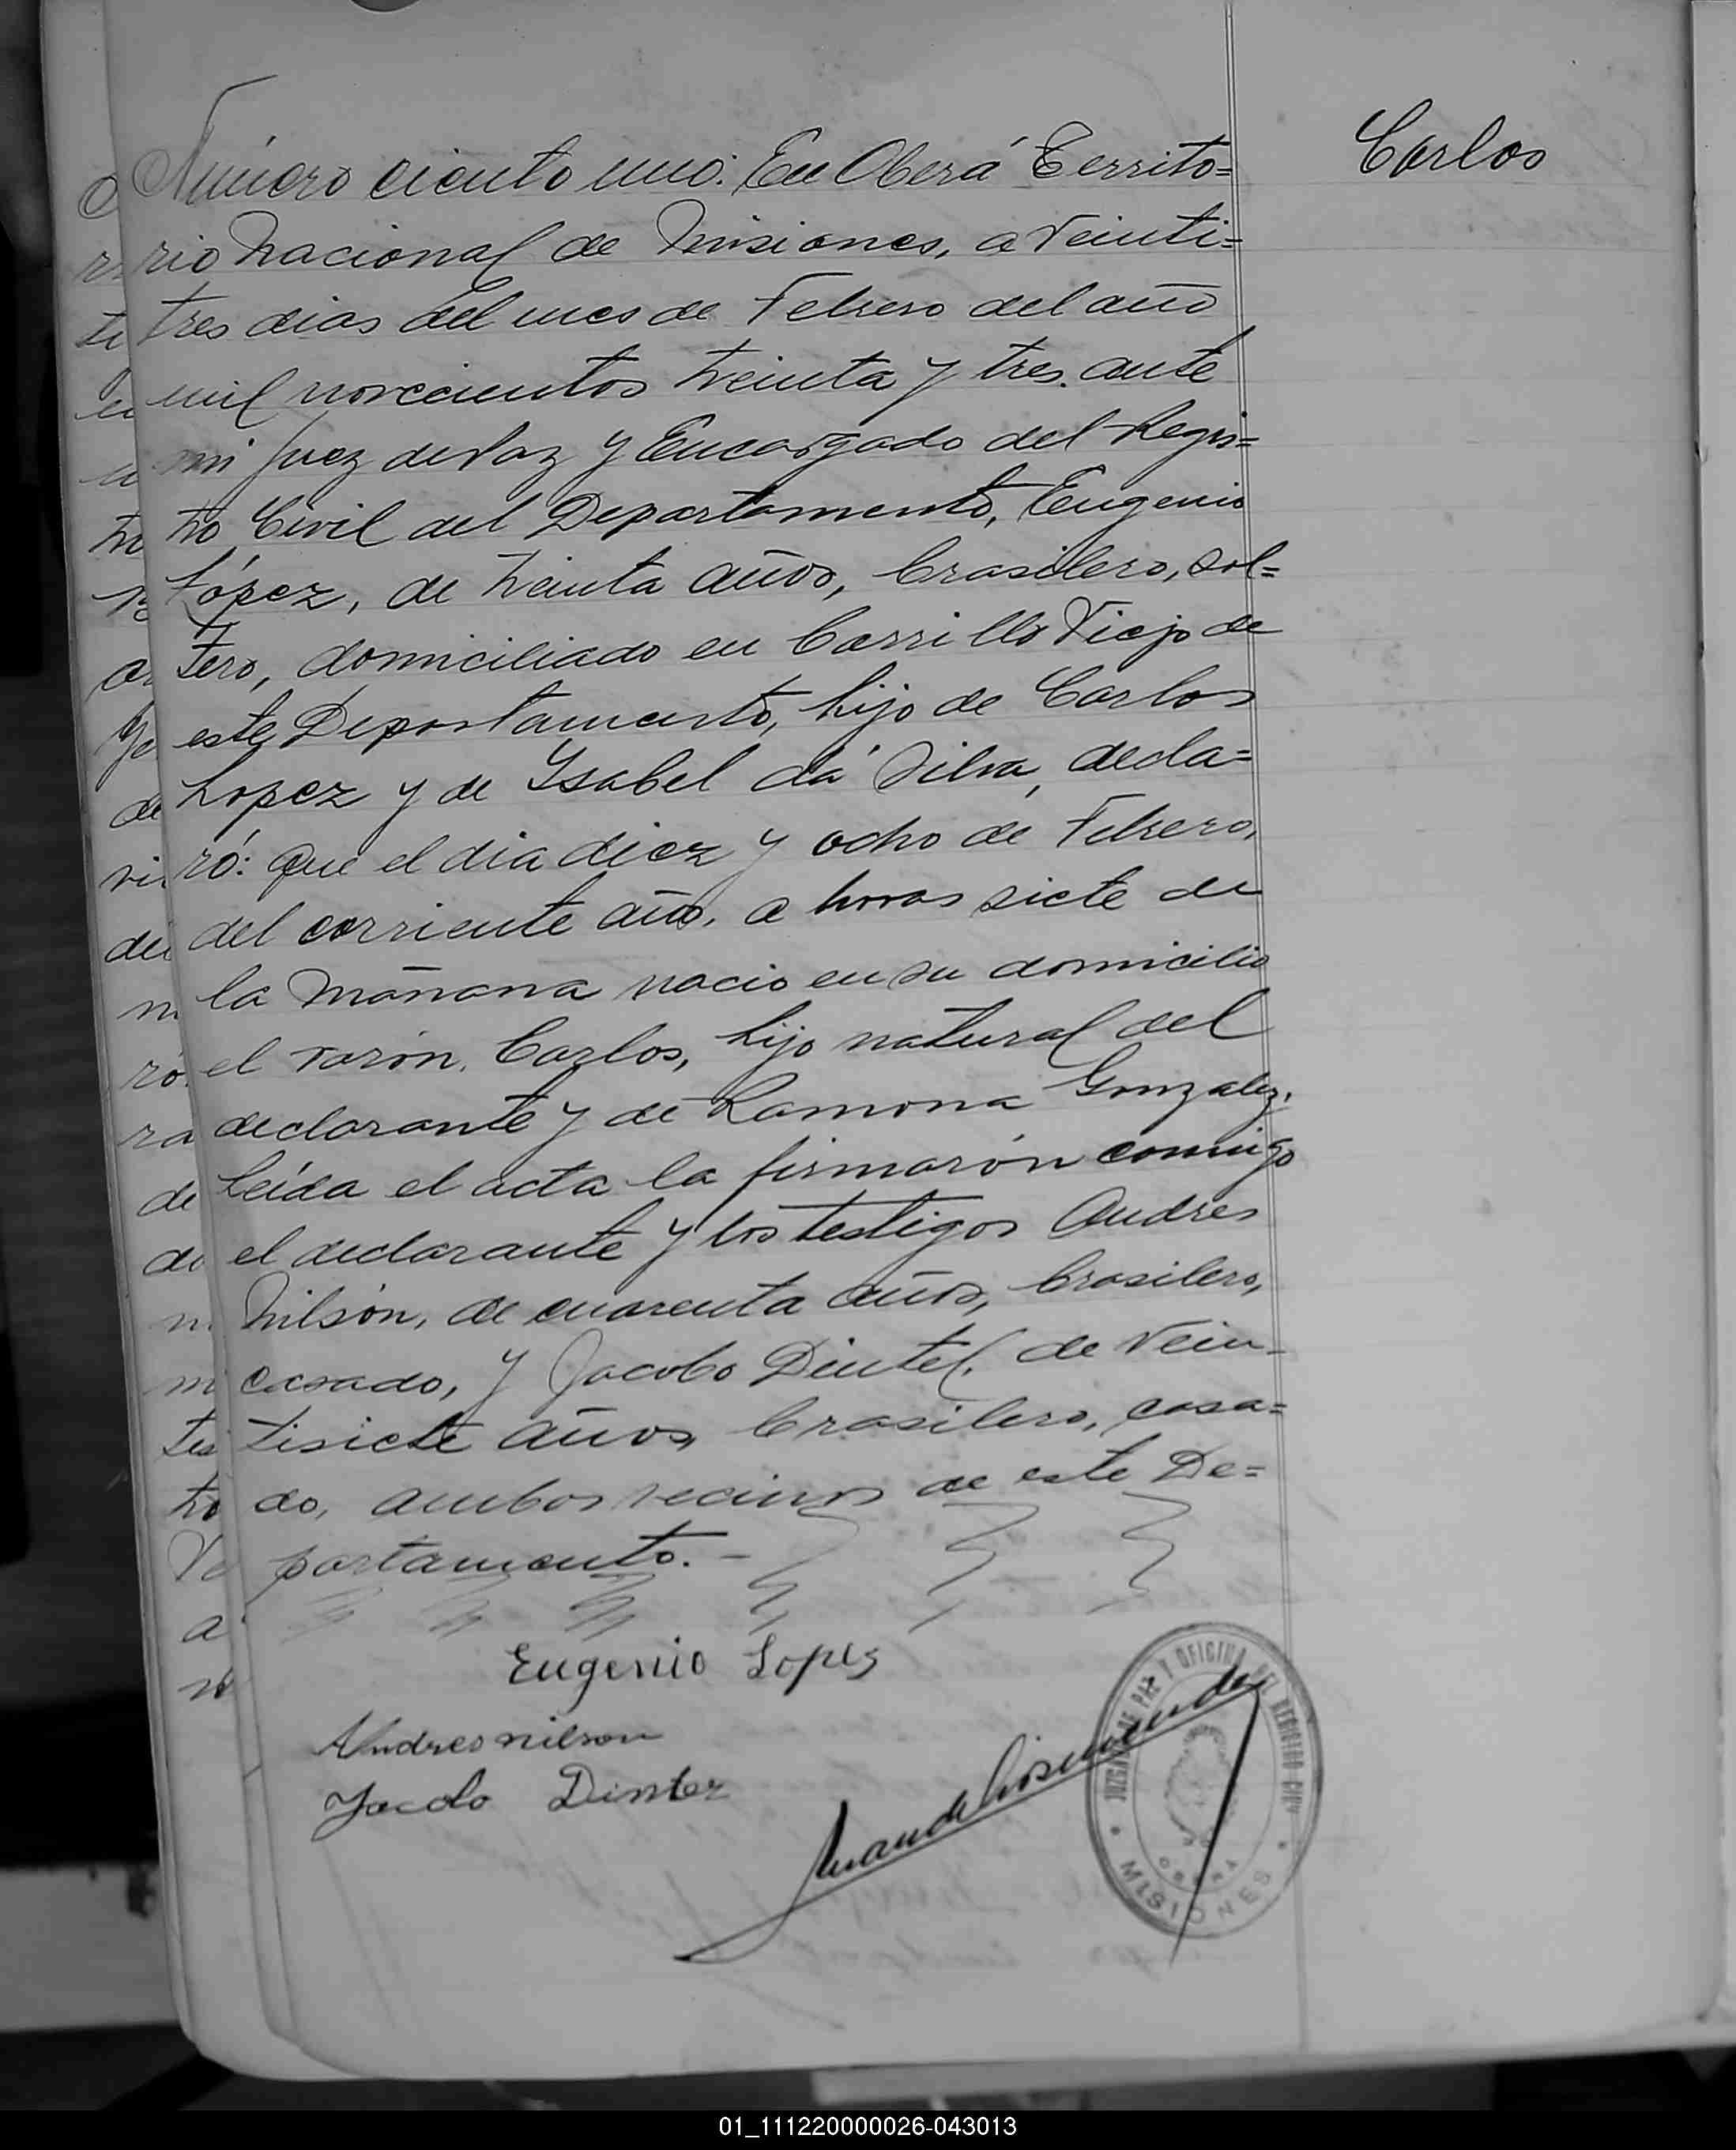 Carlos
Número ciento uno. En Oberá Territo=
rio Nacional de Misiones, a Veinti=
tres dias del mes de Febrero del año
mil novecientos treinta y tres. ante
mi Juez de Paz y Encargado del Regis=
tro Civil del Departamento, Eugenio
López, de treinta años, brasilero, sol=
tero, domiciliado en Carrillo Viejo de
este Departamento, hijo de Carlos
Lopez y de Ysabel da Silva, decla=
ró: que el dia diez y ocho de Febrero,
del corriente año, a horas siete de
la mañana nacio en su domicilio
el varón, Carlos, hijo natural del
declarante y de Ramona Gonzalez.
Leída el acta la firmarón comigo
el declarante y los testigos Andres
Nilsón, de cuarenta años, brasilero,
casado, y Jacobo Dintel, de Vein-
tisiete años, brasilero, casa=
do, ambos vecinos de este De=
partamento.-
Eugenio Lopes
Andres nilson
Jacobo Dinter
JUZGADO DE PAZ Y OFICINA DEL REGISTRO CIVIL
OBERÁ
MISIONES
01_111220000026-043013